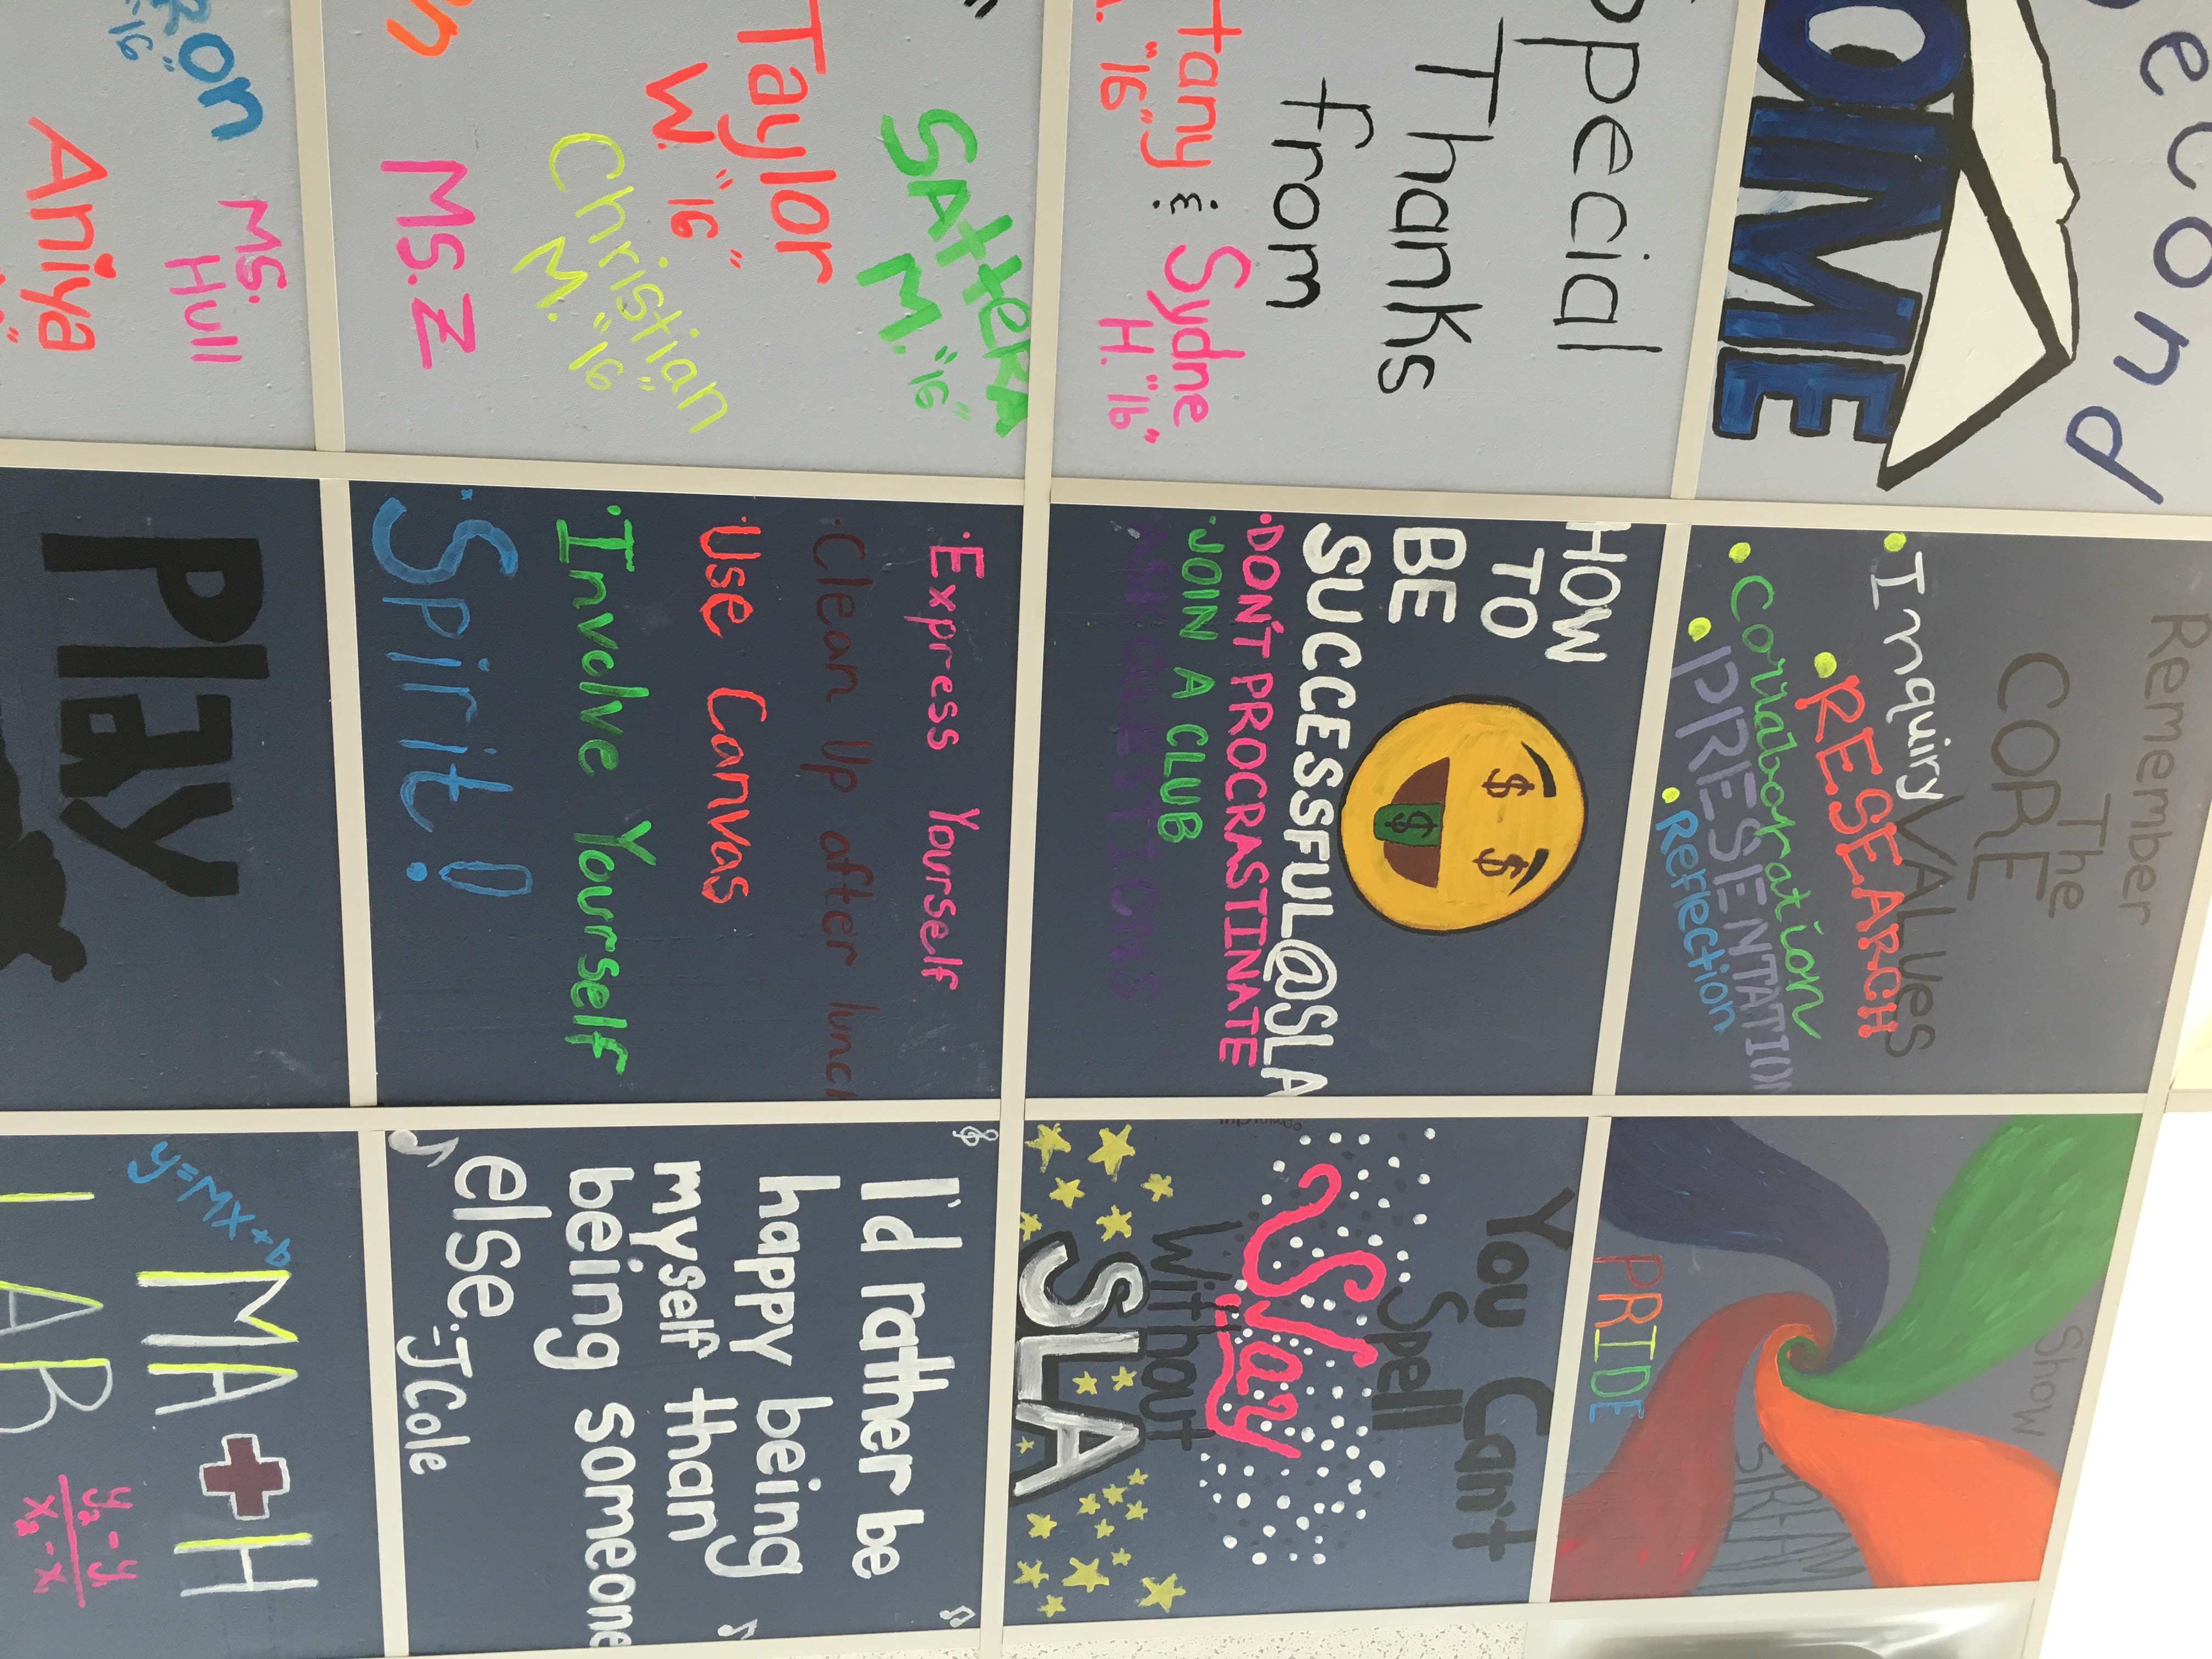 econd
OME
Special
Thanks
from
tany & Sydne
"16" H. "16"
Sattera
M. "16"
Taylor
W. "16"
Christian
M. "16"
Ms. Z
on
"16"
Ms.
Hull
Aniya
Remember
The
CORE
VALUES
• Inquiry
• RESEARCH
• Corraboration
• PRESENTATION
• Reflection
HOW
TO
BE
SUCCESSFUL@SLA
• DON'T PROCRASTINATE
• JOIN A CLUB
• ASK QUESTIONS
• Express Yourself
• Clean Up after lunch
• Use Canvas
• Involve Yourself
• Spirit!
Play
Show
STREAM
PRIDE
You Can't
Spell
Slay
Without
SLA
I'd rather be
happy being
myself than
being someone
else. -JCole
y=mx+b
MA+H
LAB
y₂-y
x₂-x